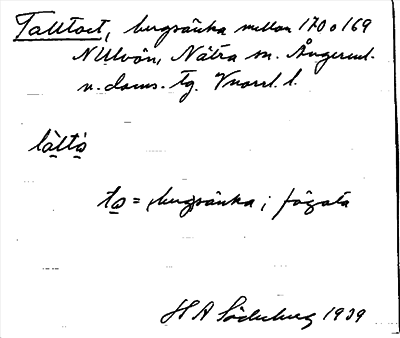 Talltoet, bergsänka mellan 170 o 169
N Ulvön, Nätra sn. Ångerml.
n. doms. tg. Vnorrl. l.
làltò
to = bergsänka; fögata
H A Söderberg 1939